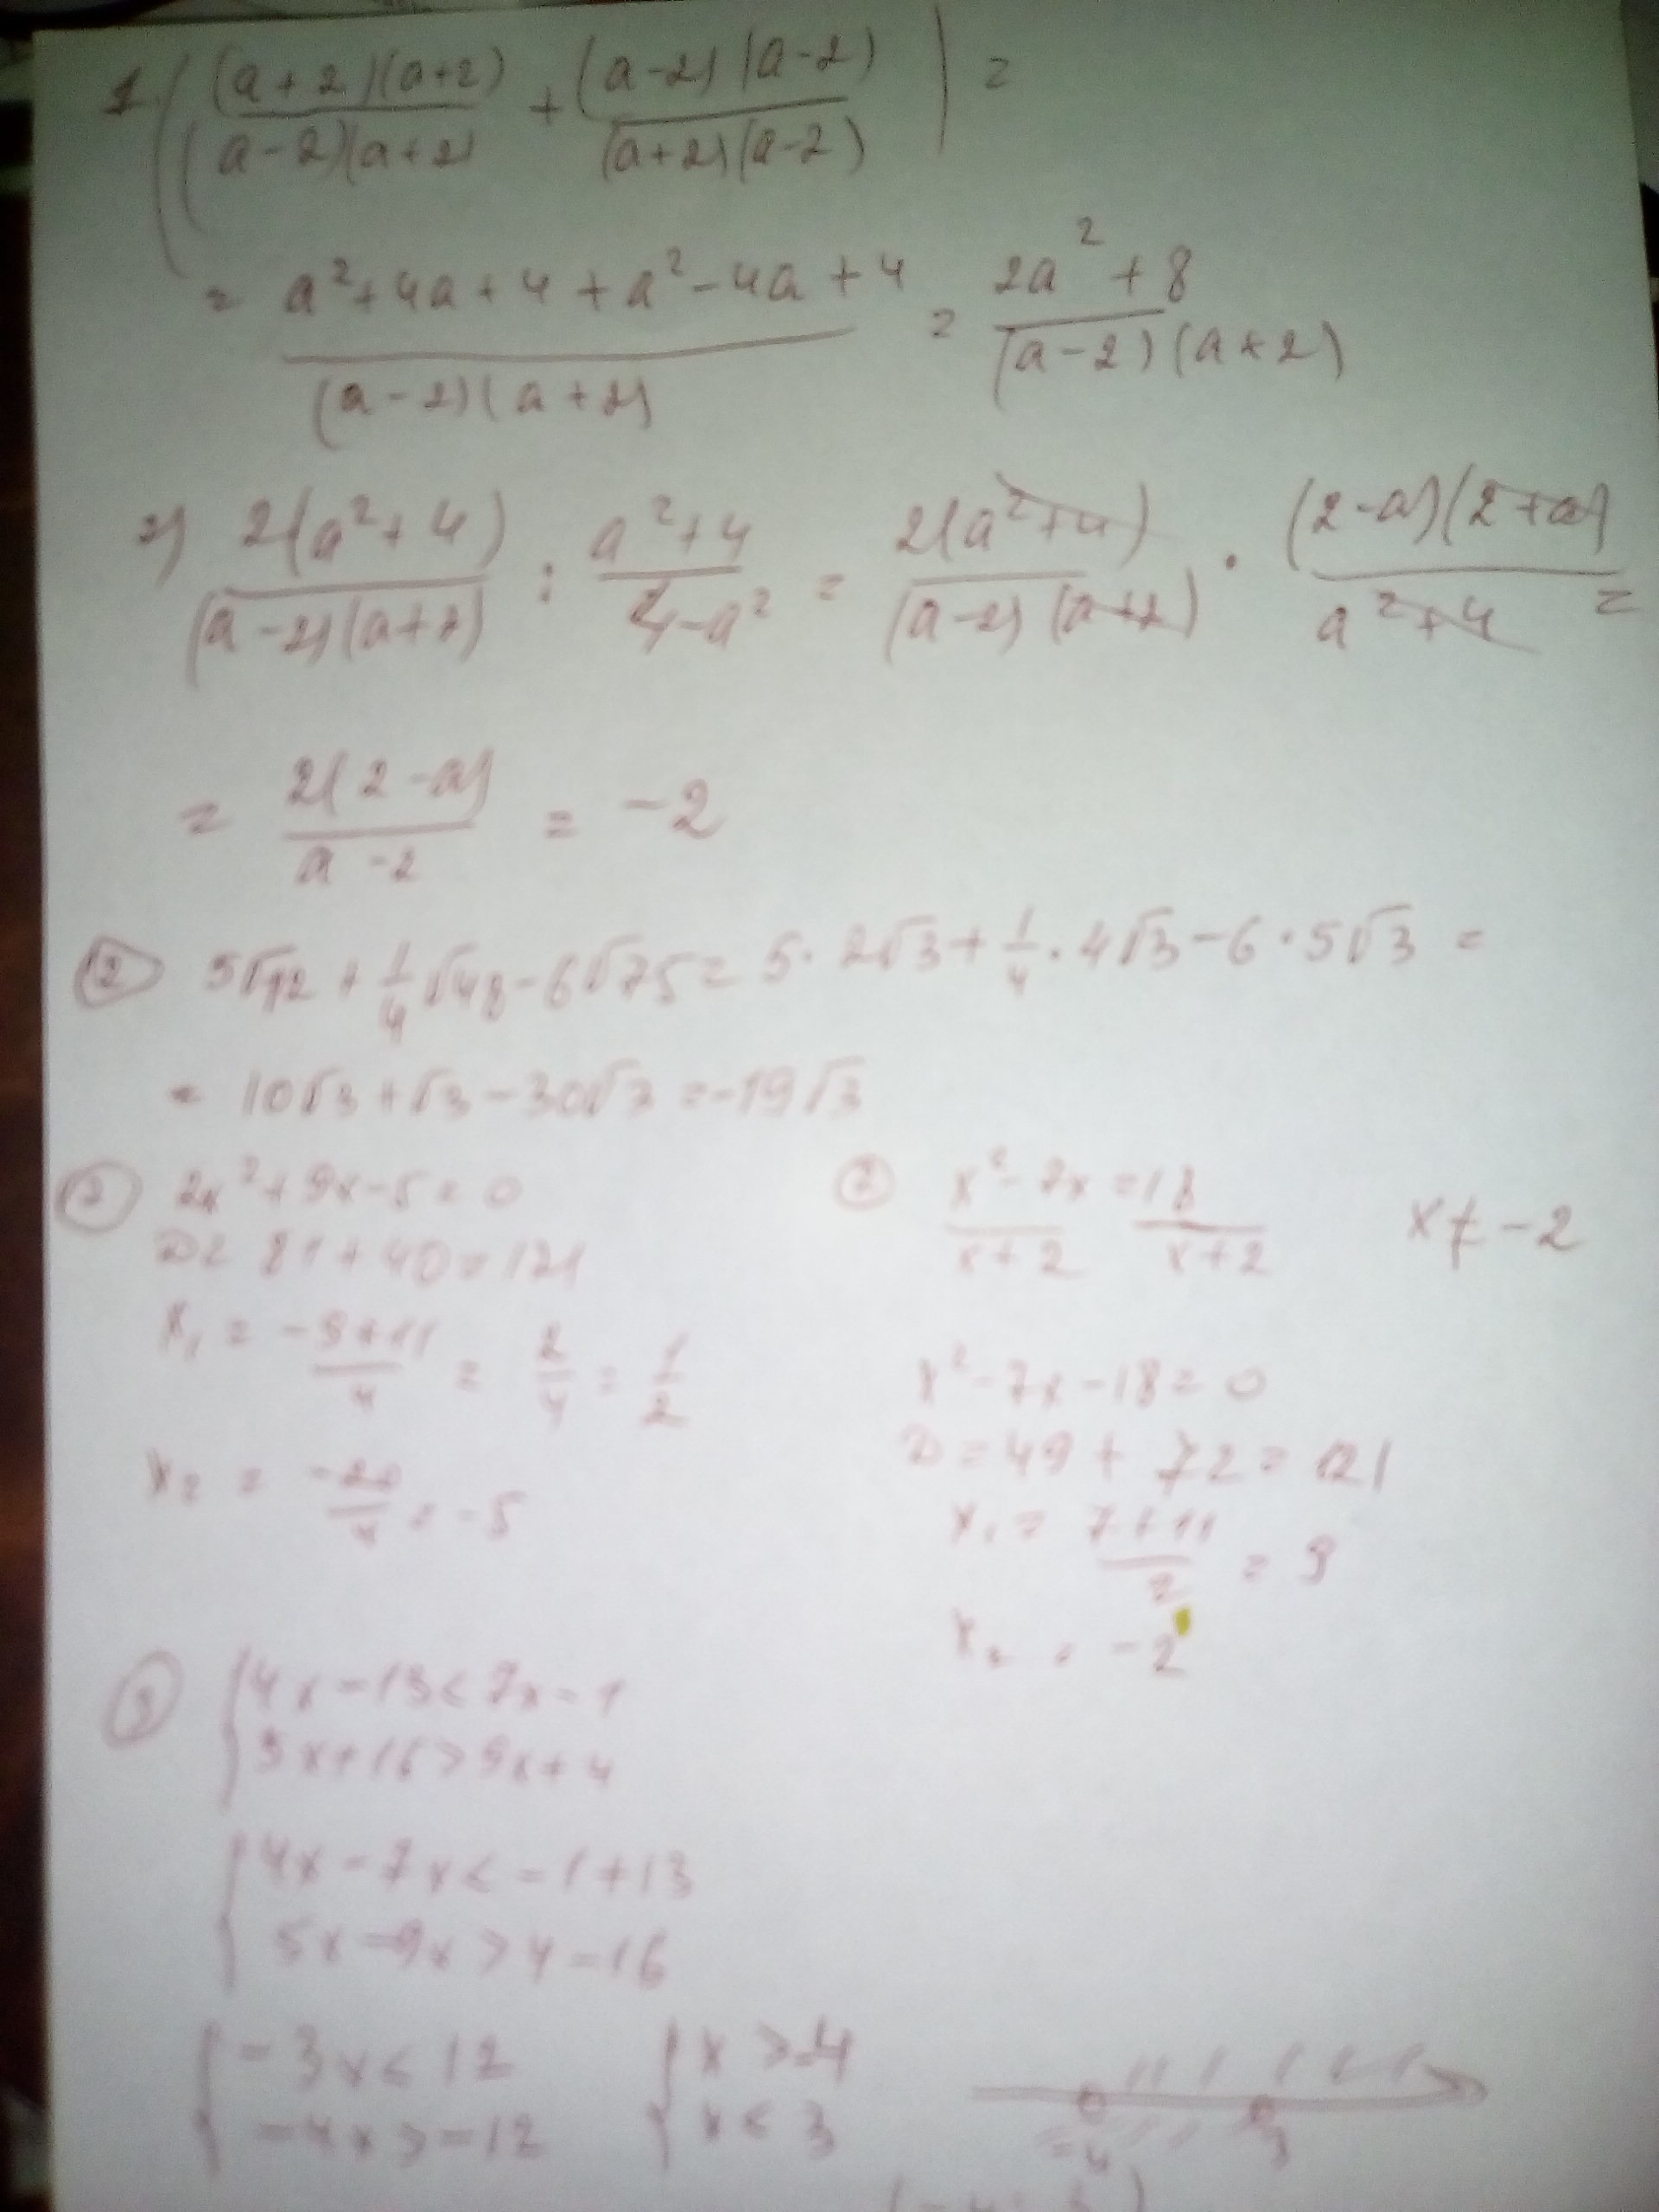 1. ((a+2)(a+2)/(a-2)(a+2) + (a-2)(a-2)/(a+2)(a-2)) =
= a²+4a+4+a²-4a+4/(a-2)(a+2) = 2a²+8/(a-2)(a+2)
2) 2(a²+4)/(a-2)(a+2) : a²+4/4-a² = 2(a²+4)/(a-2)(a+2) · (2-a)(2+a)/a²+4 =
= 2(2-a)/a-2 = -2
② 5√12 + 1/4√48 - 6√75 = 5·2√3 + 1/4·4√3 - 6·5√3 =
= 10√3 + √3 - 30√3 = -19√3
2x²+9x-5=0
D= 81+40=121
x₁ = -9+11/4 = 2/4 = 1/2
x₂ = -20/4 = -5
② x²-7x/x+2 = 18/x+2 x≠-2
x²-7x-18=0
D=49+72=121
x₁ = 7+11/2 = 9
x₂ = -2
③ {4x-13<7x-1
5x+16>9x+4
{4x-7x<-1+13
5x-9x>4-16
{-3x<12 {x>-4
-4x>-12 x<3
-4 3